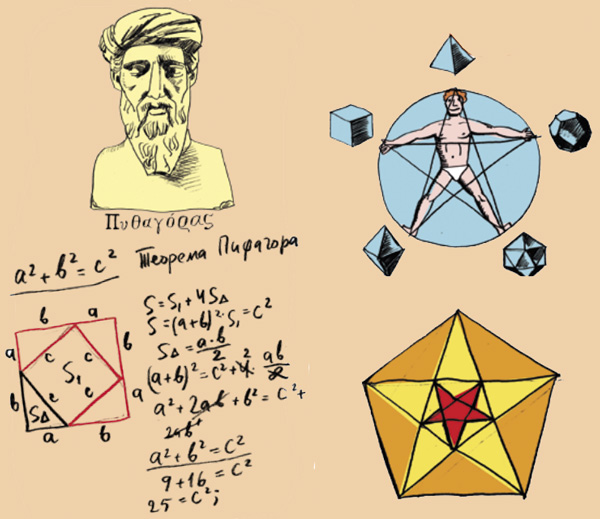 Πυθαγόρας
a² + b² = c² Теорема Пифагора
b a
a c c b
S₁
b c c a
S∆
a b
S = S₁ + 4S∆
S = (a+b)² · S₁ = c²
S∆ = a·b / 2
(a+b)² = c² + 4 · ab / 2
a² + 2ab + b² = c² +
2ab
a² + b² = c²
9 + 16 = c²
25 = c²;